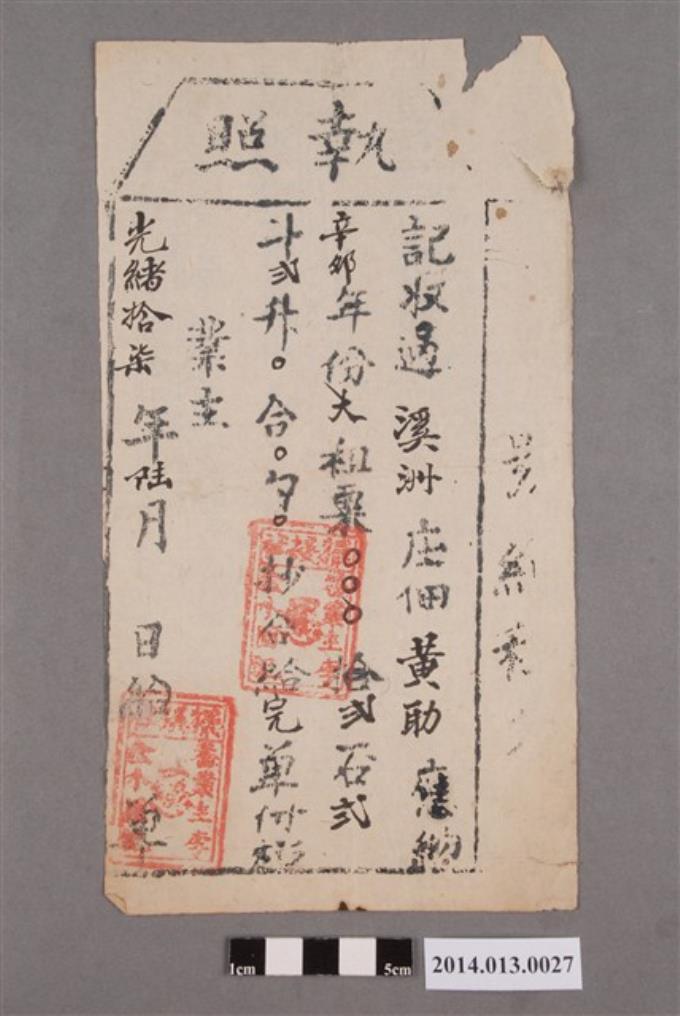 執照
記收過溪洲庄佃黃助應納
辛卯年份大租粟○○○拾弍石弍
斗弍升○合○勺○抄合給完單付炤
業主
光緒拾柒年陸月 日給 單
1cm 5cm
2014.013.0027